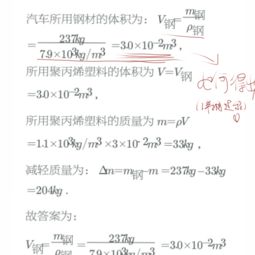 汽车所用钢材的体积为：V钢=m钢/ρ钢
=237kg/7.9×10³kg/m³=3.0×10⁻²m³，
所用聚丙烯塑料的体积为 V=V钢
=3.0×10⁻²m³，
所用聚丙烯塑料的质量为 m=ρV
=1.1×10³kg/m³×3×10⁻²m³=33kg，
减轻质量为：Δm=m钢-m=237kg-33kg
=204kg．
故答案为：
V钢=m钢/ρ钢=237kg/7.9×10³kg/m³=3.0×10⁻²m³